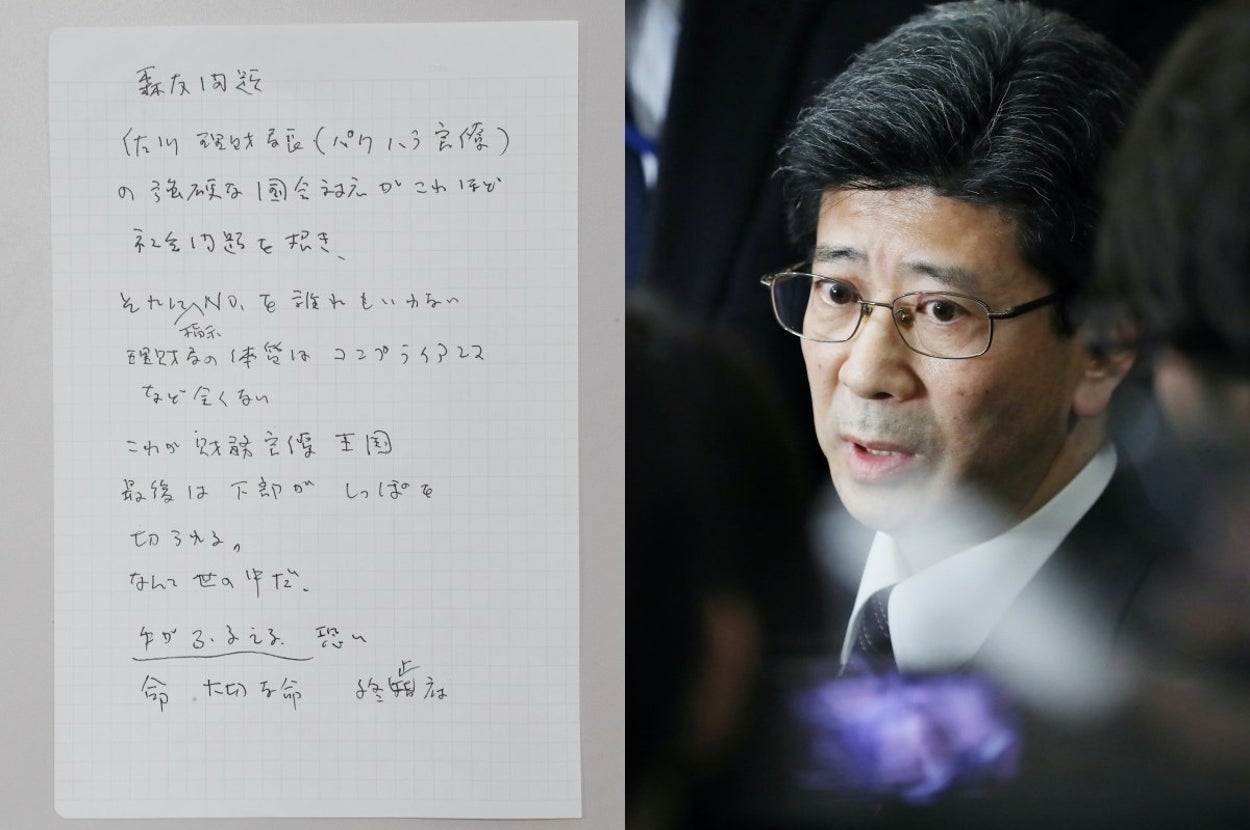 森友問題
佐川 理財局長(パワハラ官僚)
の強硬な国会対応がこれほど
社会問題を招き、
それにNO、を誰れもいわない
指示
理財局の体質は コンプライアンス
など全くない
これが財務官僚王国
最後は下部がしっぽを
切られる。
なんて世の中だ、
手がふるえる 恐い
命 大切な命 終止府